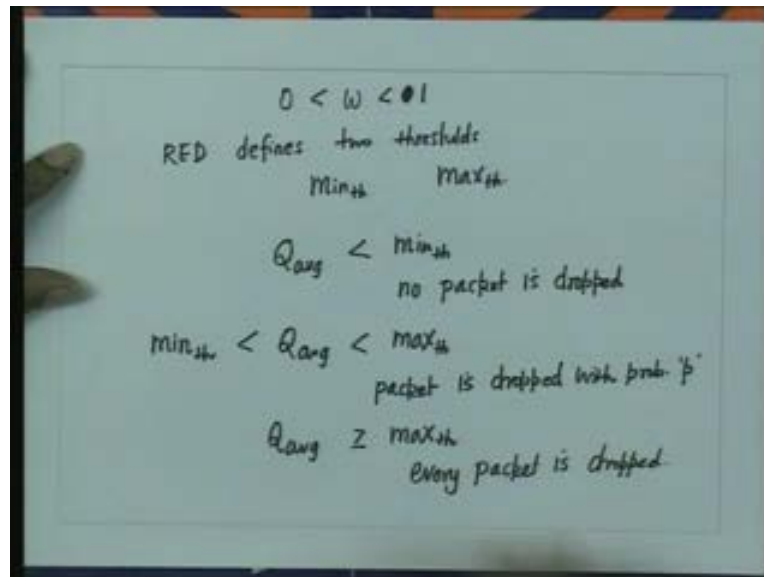 0 < w < 1
RED defines two thresholds
min_th max_th
Q_avg < min_th
no packet is dropped
min_th < Q_avg < max_th
packet is dropped with prob. 'p'
Q_avg ≥ max_th
every packet is dropped.